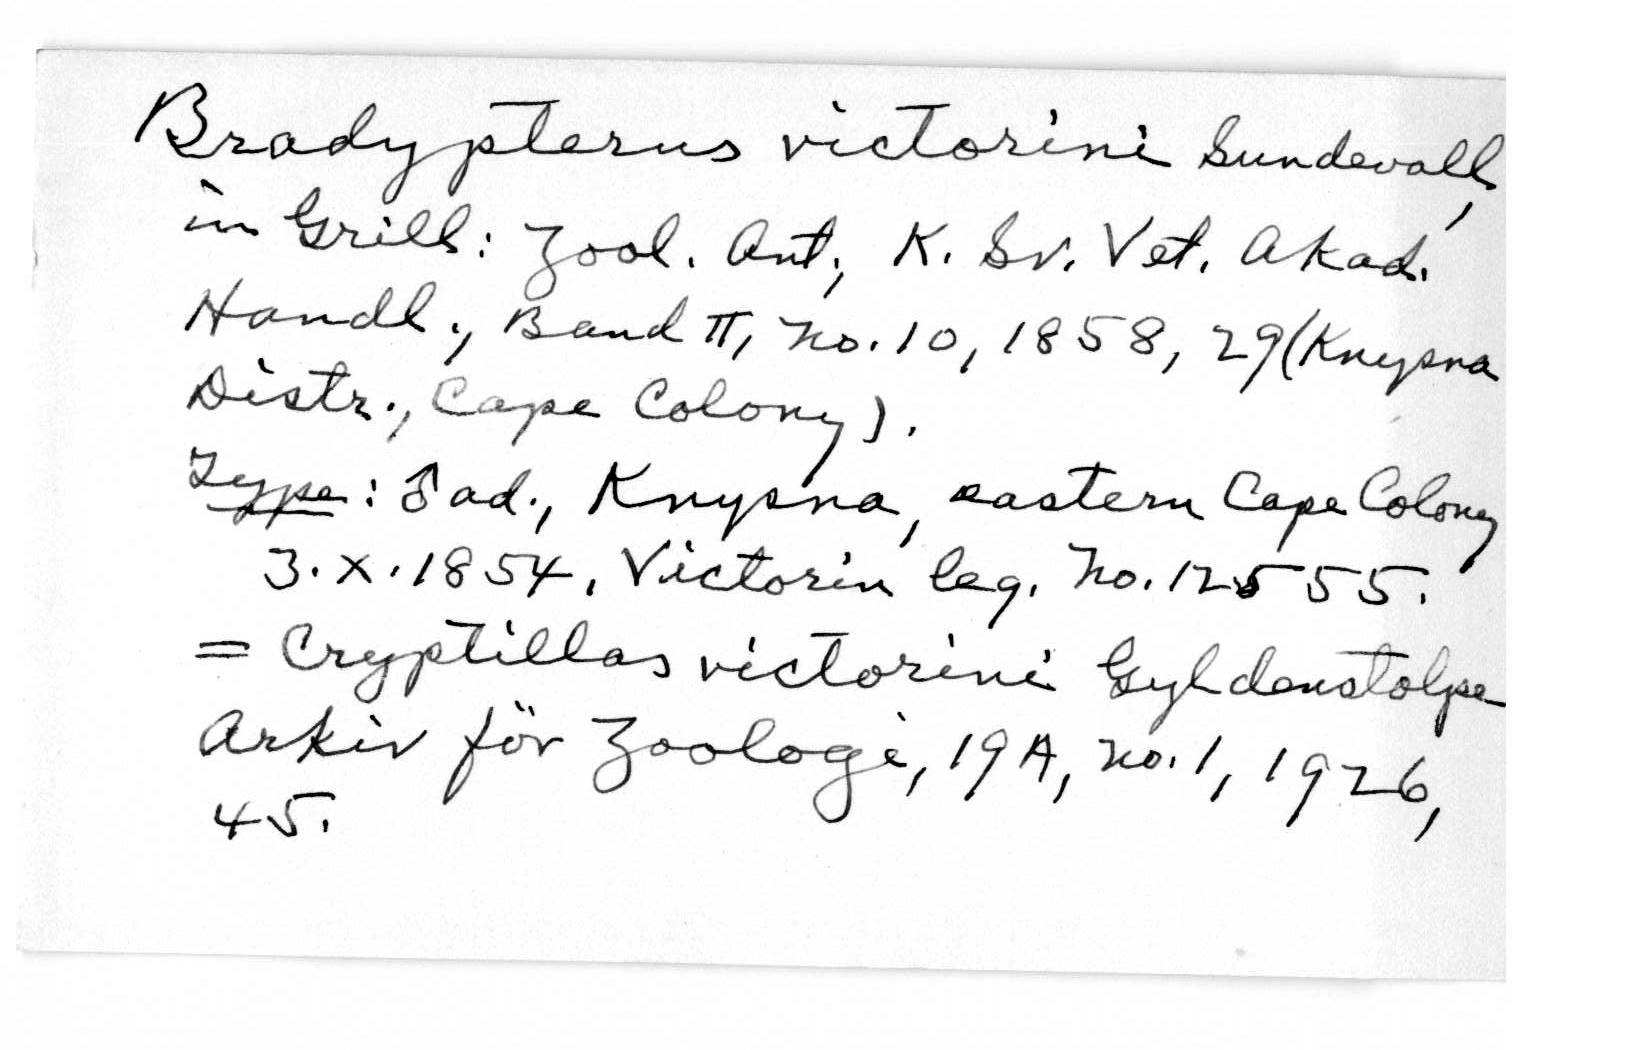 Bradypterus victorini Sundevall,
in Grill: Zool. Ant., K. Sv. Vet. Akad.
Handl., Band II, No. 10, 1858, 29 (Knysna
Distr., Cape Colony).
Type: ♂ ad., Knysna, eastern Cape Colony
3.X.1854, Victorin leg. No. 12555.
= Cryptillas victorini Gyldenstolpe
Arkiv för Zoologi, 19A, No. 1, 1926,
45.